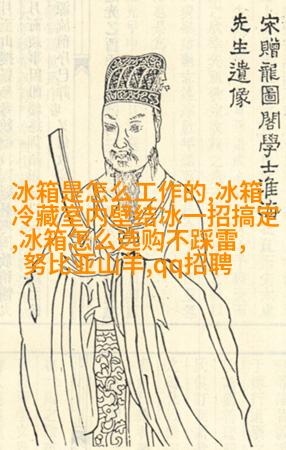 宋贈龍圖閣學士淮
先生遺像
冰箱是怎么工作的,冰箱
冷藏室内壁结冰一招搞定
,冰箱怎么选购不踩雷,
努比亚山羊,qq招聘